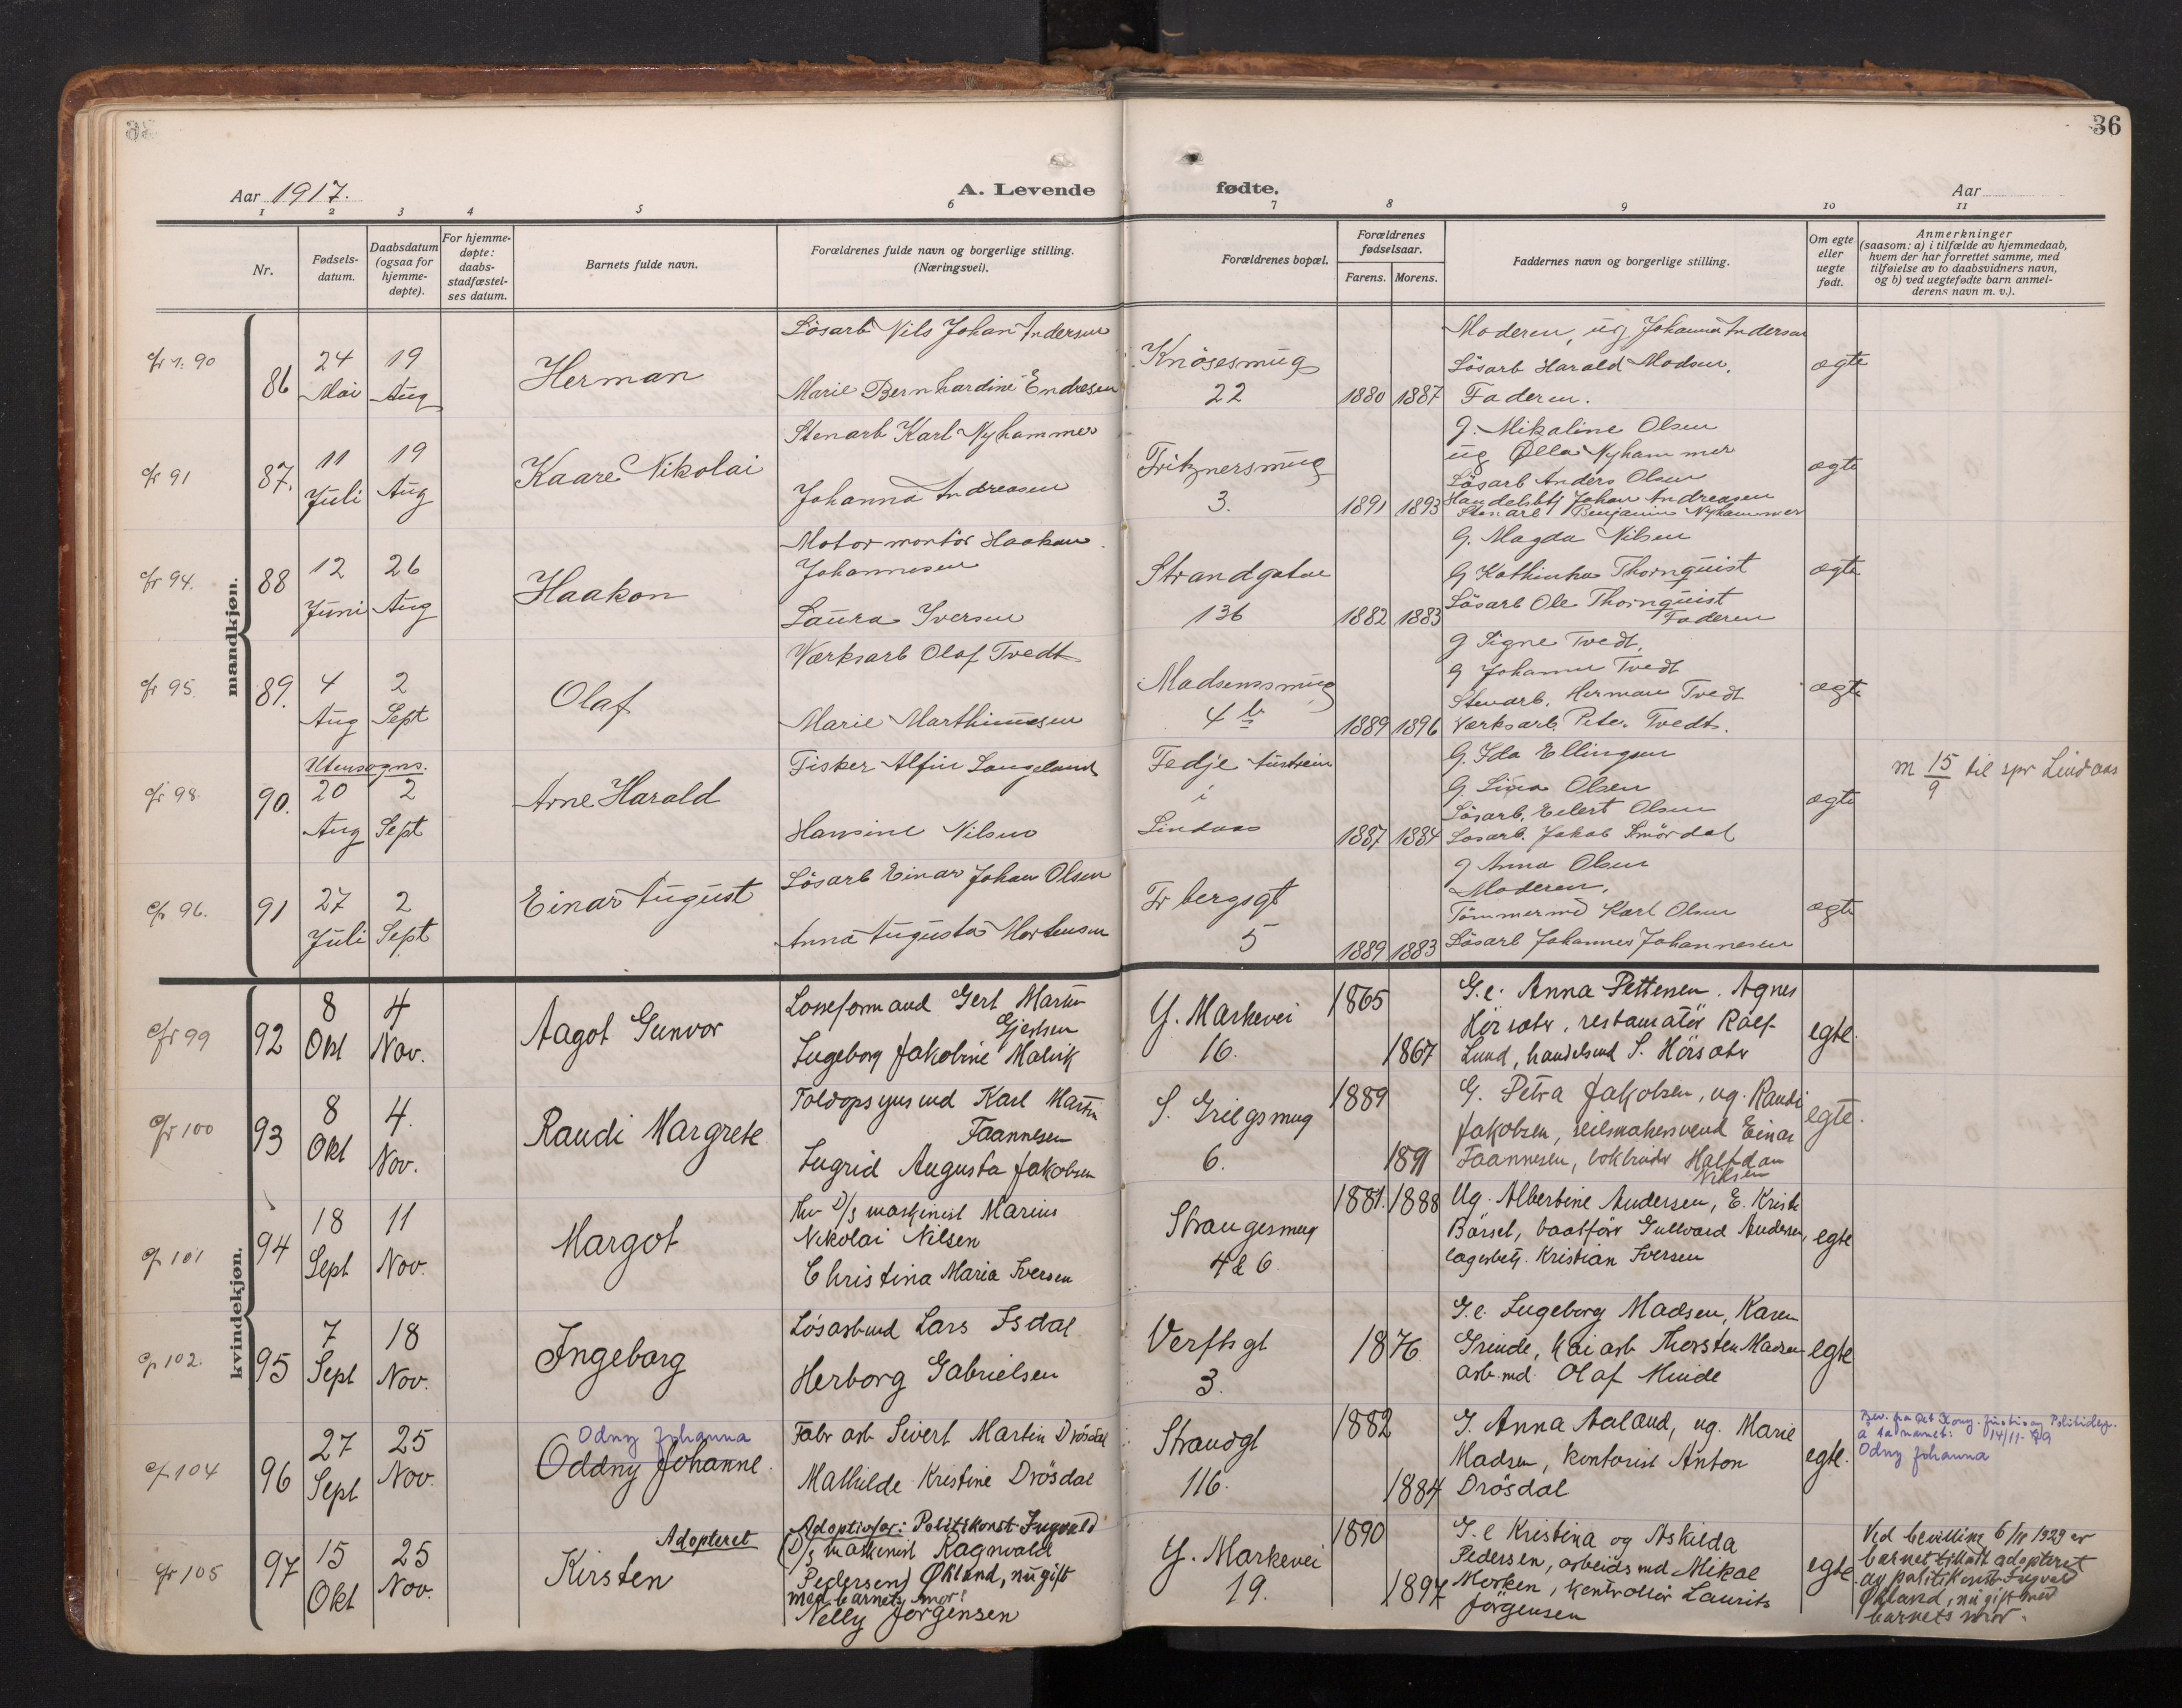 36
Aar 1917.
A. Levende fødte.
Aar
1 2 3 4 5 6 7 8 9 10 11
Nr.
Fødsels-
datum.
Daabsdatum
(ogsaa for
hjemme-
døpte).
For hjemme-
døpte:
daabs-
stadfæstel-
ses datum.
Barnets fulde navn.
Forældrenes fulde navn og borgerlige stilling.
(Næringsvei).
Forældrenes bopæl.
Forældrenes
fødselsaar.
Farens. Morens.
Faddernes navn og borgerlige stilling.
Om egte
eller
uegte
født.
Anmerkninger
(saasom: a) i tilfælde av hjemmedaab,
hvem der har forrettet samme, med
tilføielse av to daabsvidners navn,
og b) ved uegtefødte barn anmel-
derens navn m. v.).
mandkjøn.
cfr n. 90
86
24 Mai
19 Aug
Herman
Lösarb Nils Johan Andersen
Marie Bernhardine Endresen
Knösesmug
22
1880 1887
Moderen, ug Johanna Andersen
Lösarb Harald Madsen.
Faderen.
ægte
cfr 91
87.
11 Juli
19 Aug
Kaare Nikolai
Stenarb Karl Nyhammer
Johanna Andreasen
Fritznersmug
3.
1891 1893
g. Mikaline Olsen
ug Olla Nyhammer
Lösarb Anders Olsen
Handelsbtj Johan Andreasen
Stenarb Benjamin Nyhammer
ægte
cfr 94.
88
12 Juni
26 Aug
Haakon
Motormontör Haakon
Johannesen
Laura Iversen
Strandgaten
136
1882 1883
G. Magda Nilsen
G Kathinka Thornquist
Lösarb Ole Thornquist
Faderen
ægte
cfr 95.
89.
4 Aug
2 Sept
Olaf
Værksarb Olaf Tvedt
Marie Marthinusen
Madsenssmug
4 b
1889 1896
g Signe Tvedt,
g Johanne Tvedt
Stenarb. Herman Tvedt
Værksarb. Peter Tvedt.
ægte
cfr 98.
90.
Utensogns.
20 Aug
2 Sept
Arne Harald
Fisker Alfin Langeland
Hansine Nilsen
Fedje Austrein
i
Lindaas
1887 1884
G. Ida Ellingsen
G. Lina Olsen
Lösarb. Eilert Olsen
Lösarb. Jakob Smördal
ægte
m 15/9 til spr Lindaas
cfr 96.
91
27 Juli
2 Sept
Einar August
Lösarb Einar Johan Olsen
Anna Augusta Mortensen
Fr bergsgt
5
1889 1883
g Anna Olsen
Moderen.
Tömmermd Karl Olsen
Lösarb Johannes Johannesen
ægte
kvindekjøn.
cfr 99
92
8 Okt
4 Nov.
Aagot Gunvor
Losseformand Gert Martin
Gjertsen
Ingeborg Jakobine Malvik
Y. Markevei
16.
1865
1867
G.e. Anna Pettersen. Agnes
Hörsæter, restauratör Ralf
Lund, handelsmd S. Hörsæter
egte.
cfr 100
93
8 Okt
4. Nov.
Randi Margrete
Toldopsynsmd Karl Martin
Faannesen
Ingrid Augusta Jakobsen
S. Griegsmug
6.
1889
1891
G. Petra Jakobsen, ug. Randi
Jakobsen, seilmakersvend Einar
Faannesen, bokbinder Halfdan
Nilsen
egte.
cfr 101
94
18 Sept
11 Nov.
Margot
D/s maskinist Marius
Nikolai Nilsen
Christina Maria Iversen
Strangesmug
4 & 6.
1881. 1888
Ug. Albertine Andersen, E. Kristi
Börset, baatförer Gullvard Andersen,
lagerbetj. Kristian Iversen
egte
cfr 102.
95
7 Sept
18 Nov.
Ingeborg
Lösarbmd Lars Isdal
Herborg Gabrielsen
Verftsgt
3.
1876
G.e. Ingeborg Madsen, Karen
Grinde, kaiarb Thorsten Madsen
arb.md. Olaf Minde
egte
cfr 104
96
27 Sept
25 Nov.
Odny Johanna
Oddny Johanne.
Fabr arb Sivert Martin Drösdal
Mathilde Kristine Drösdal
Strandgt
116.
1882
1884
G. Anna Aaland, ug. Marie
Madsen, kontorist Anton
Drösdal
egte.
Bev. fra Det Kong. Justis og Politidep.
a ta navnet: 14/11-
Odny Johanna
cfr 105
97
15 Okt
25 Nov.
Adopteret
Kirsten
Adoptivfar: Politikonst. Ingvald
(D/s maskinist Ragnvald
Pedersen) Økland, nu gift
med barnets mor:
Nelly Jørgensen
Y. Markevei
19.
1890
1897
G.e Kristina og Askilda
Pedersen, arbeidsmd Mikal
Morken, kontrollör Laurits
Jörgensen
egte.
Ved bevilling 6/ 1929 er
barnet tillatt adopteret
av politikonst. Ingvald
Økland, nu gift med
barnets mor.